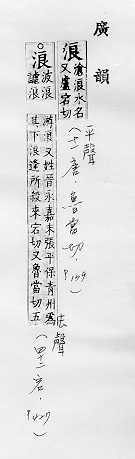 廣韻
浪
滄浪水名
又盧宕切
平聲
(十一.唐.魯當切.
○浪
波浪
謔浪
游浪又姓晉永嘉末張平保青州爲
其下浪逢所殺來宕切又魯當切五
去聲
(四十二.宕. P.427)